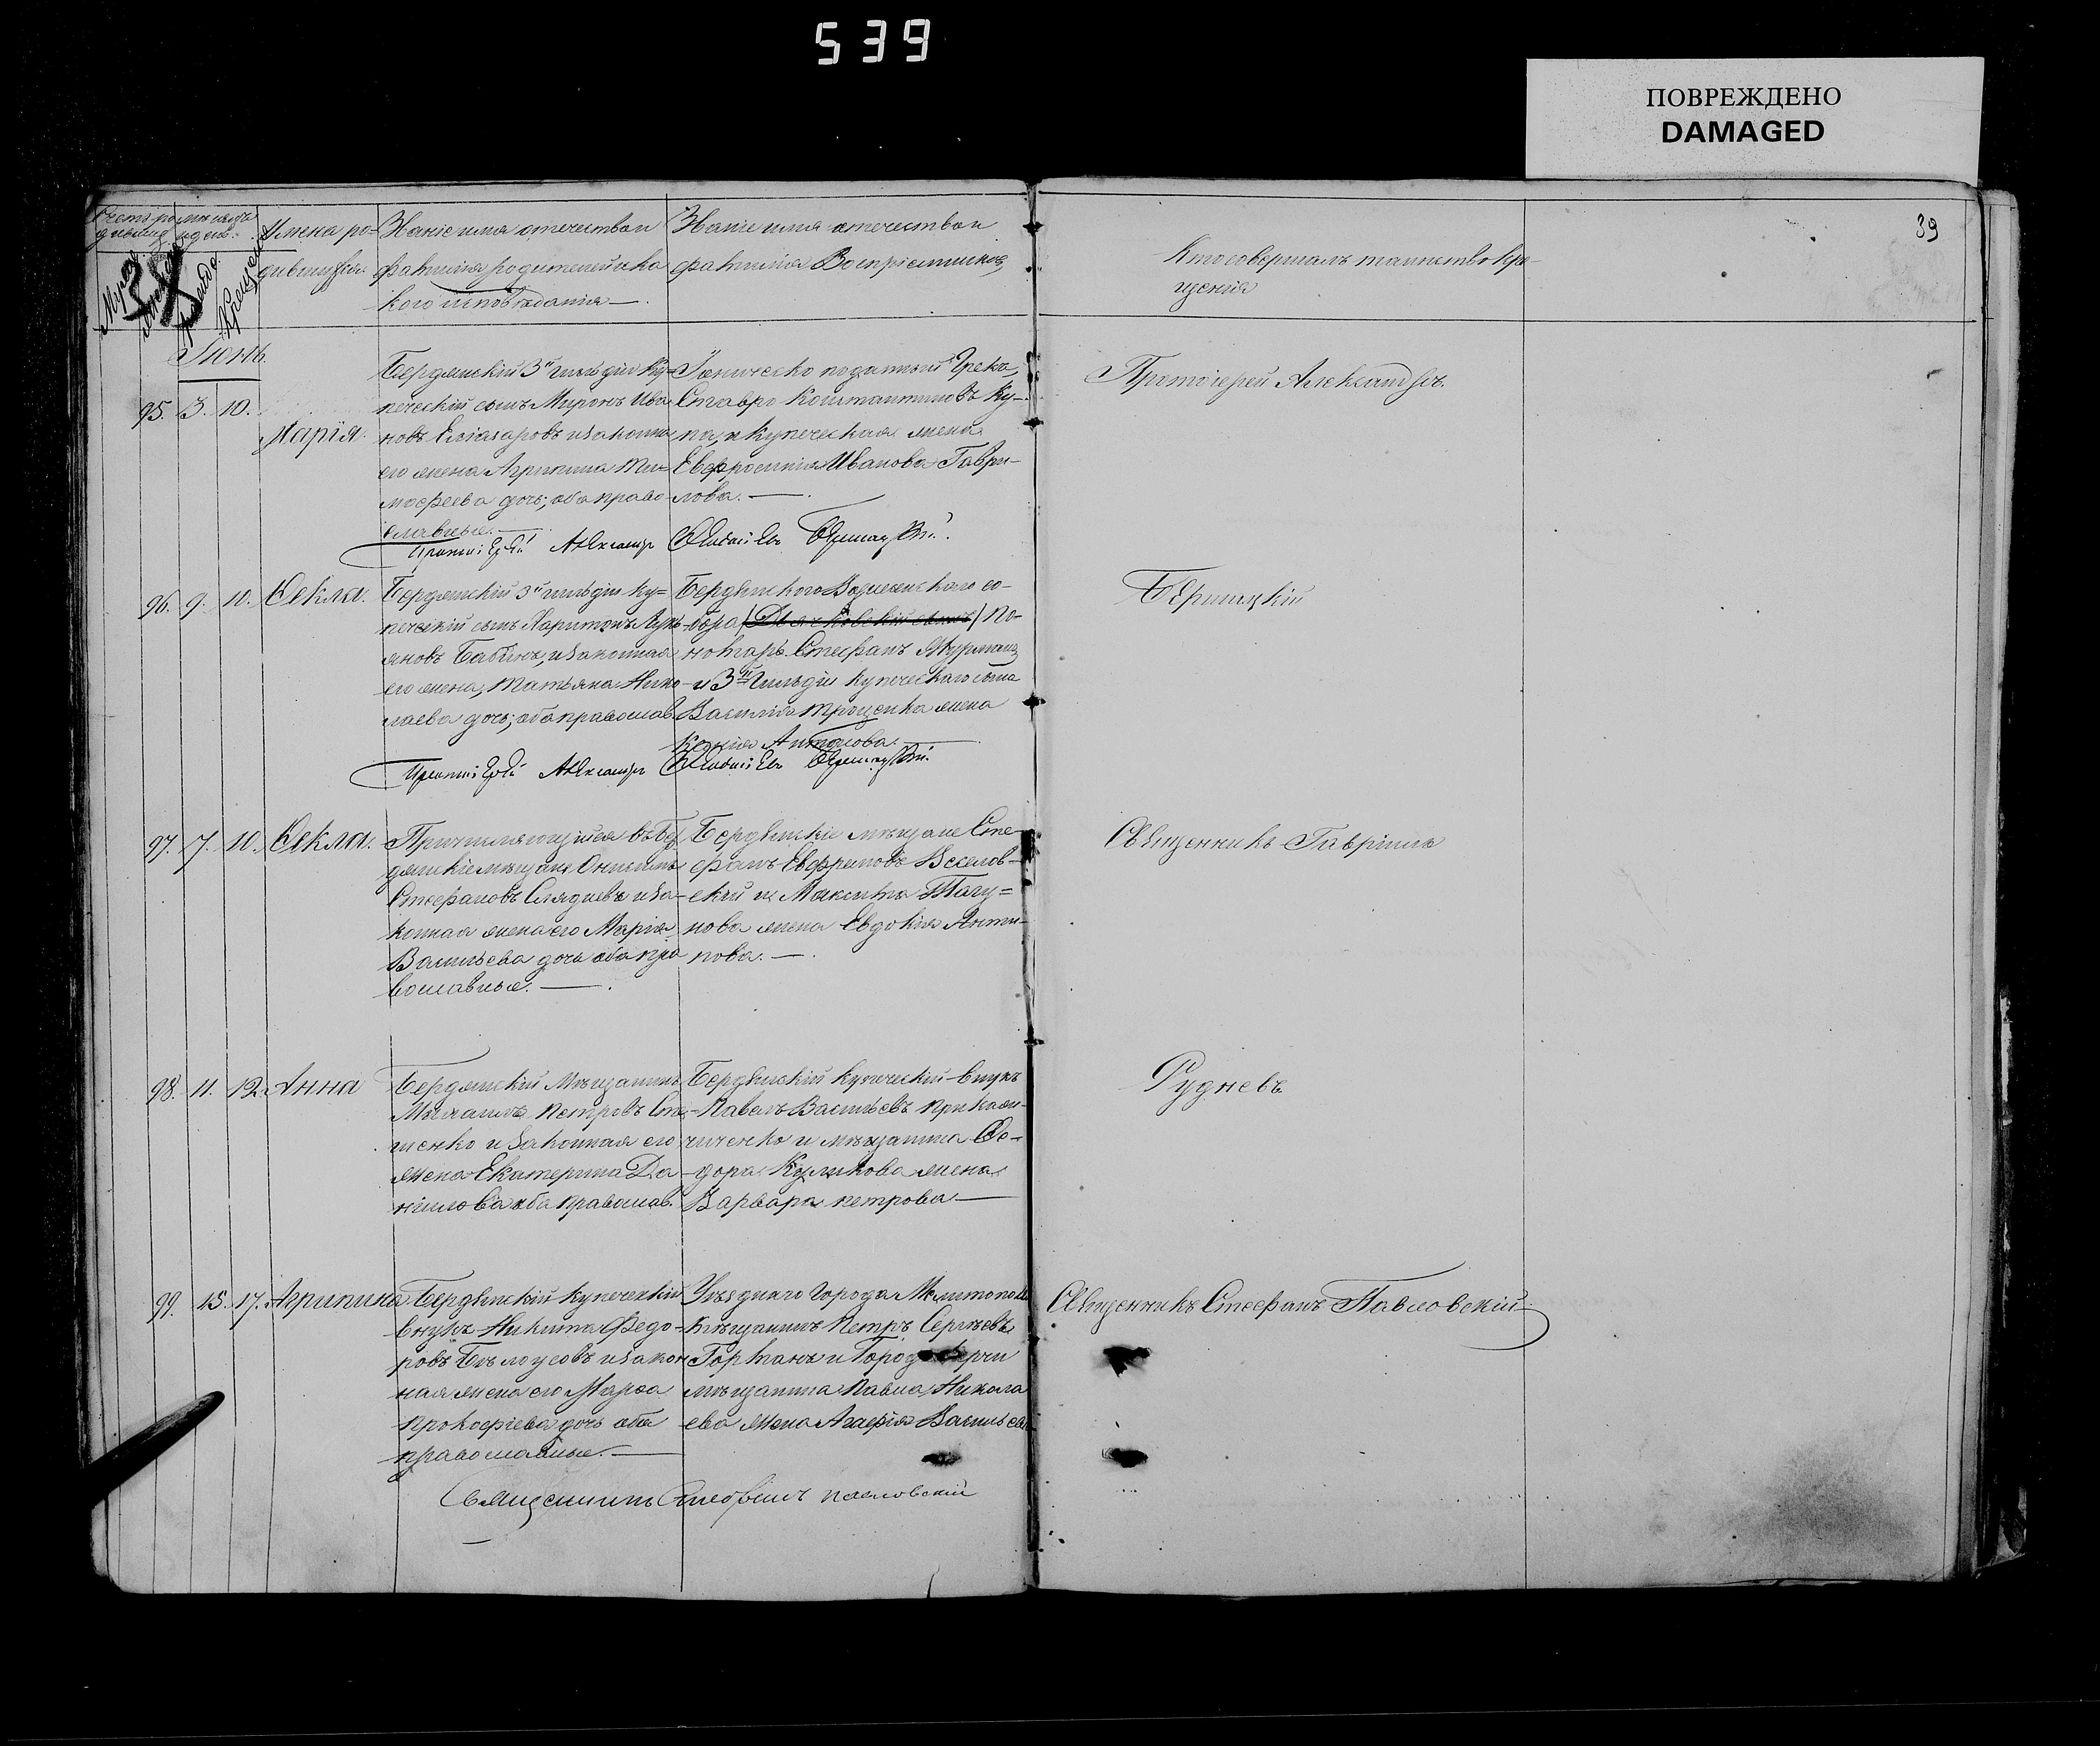 539
ПОВРЕЖДЕНО
DAMAGED
39
Имена ро-
дившихся.
Званіе имя отечество и
фамилія родителей и ка
кого исповѣданія
Званіе имя отечество и
фамилія Воспріемниковъ
Кто совершалъ таинство кре-
щенія
Іюнь
95. 3. 10.
Марія.
Бердянскій 3й гильдіи Ку-
печескій сынъ Миронъ Ива
новъ Еліазаровъ и законна
его жена Агрипина Ти-
мофеева дочь; оба право
славные.
Іонического подданный Грекъ,
Ставро Константиновъ Ку-
па, и купеческая жена
Евфросинія Иванова Гаври-
лова.
Протоіерей Александръ
Протоіерей Александръ
96. 9. 10. Ѳекла.
Бердянскій 3й гильдіи ку-
печескій сынъ Харитонъ Лукь
яновъ Бабинъ, и законная
его жена, Татьяна Нико
лаева дочь; оба православ.
Бердянского Вознесенскаго со-
бора По-
номарь Стефанъ
и 3й Гильдіи купеческаго сына
Василія Троценка жена
Ксенія Антонова.
Протоіерей Александръ
Бершацкій
97. 7. 10. Ѳекла.
Причисляющійся въ Бер
дянскіе мѣщане Онисимъ
Стефановъ и за-
конная жена его Марія
Васильева дочь оба пра
вославные.
Бердянскіе мѣщане Сте
фанъ Евфремовъ Веселов-
скій и Максима
нова жена Евдокія Анти-
пова.
Священникъ Гавріилъ
98. 11. 12. Анна
Бердянскій Мѣщанинъ
Михаилъ Петровъ
и законная его
жена Екатерина Да-
нилова оба православ.
Бердянскій купеческій внукъ
Павелъ Васильевъ
и мѣщанина Ѳе-
дора Куликова жена
Варвара Петрова
Рудневъ
99. 15. 17. Агрипина
Бердянскій купеческій
внукъ Никита Федо-
ровъ Бѣлоусовъ и закон
ная жена его Марѳа
Прокофіева дочь оба
православные.
Уѣзднаго Города Мелитополя
мѣщанинъ Петръ Сергѣевъ
Горманъ и
мѣщанина Павла Никола
ева жена Агафія Васильева
Священникъ Стефанъ Павловскій
Священникъ Стефанъ Павловскій